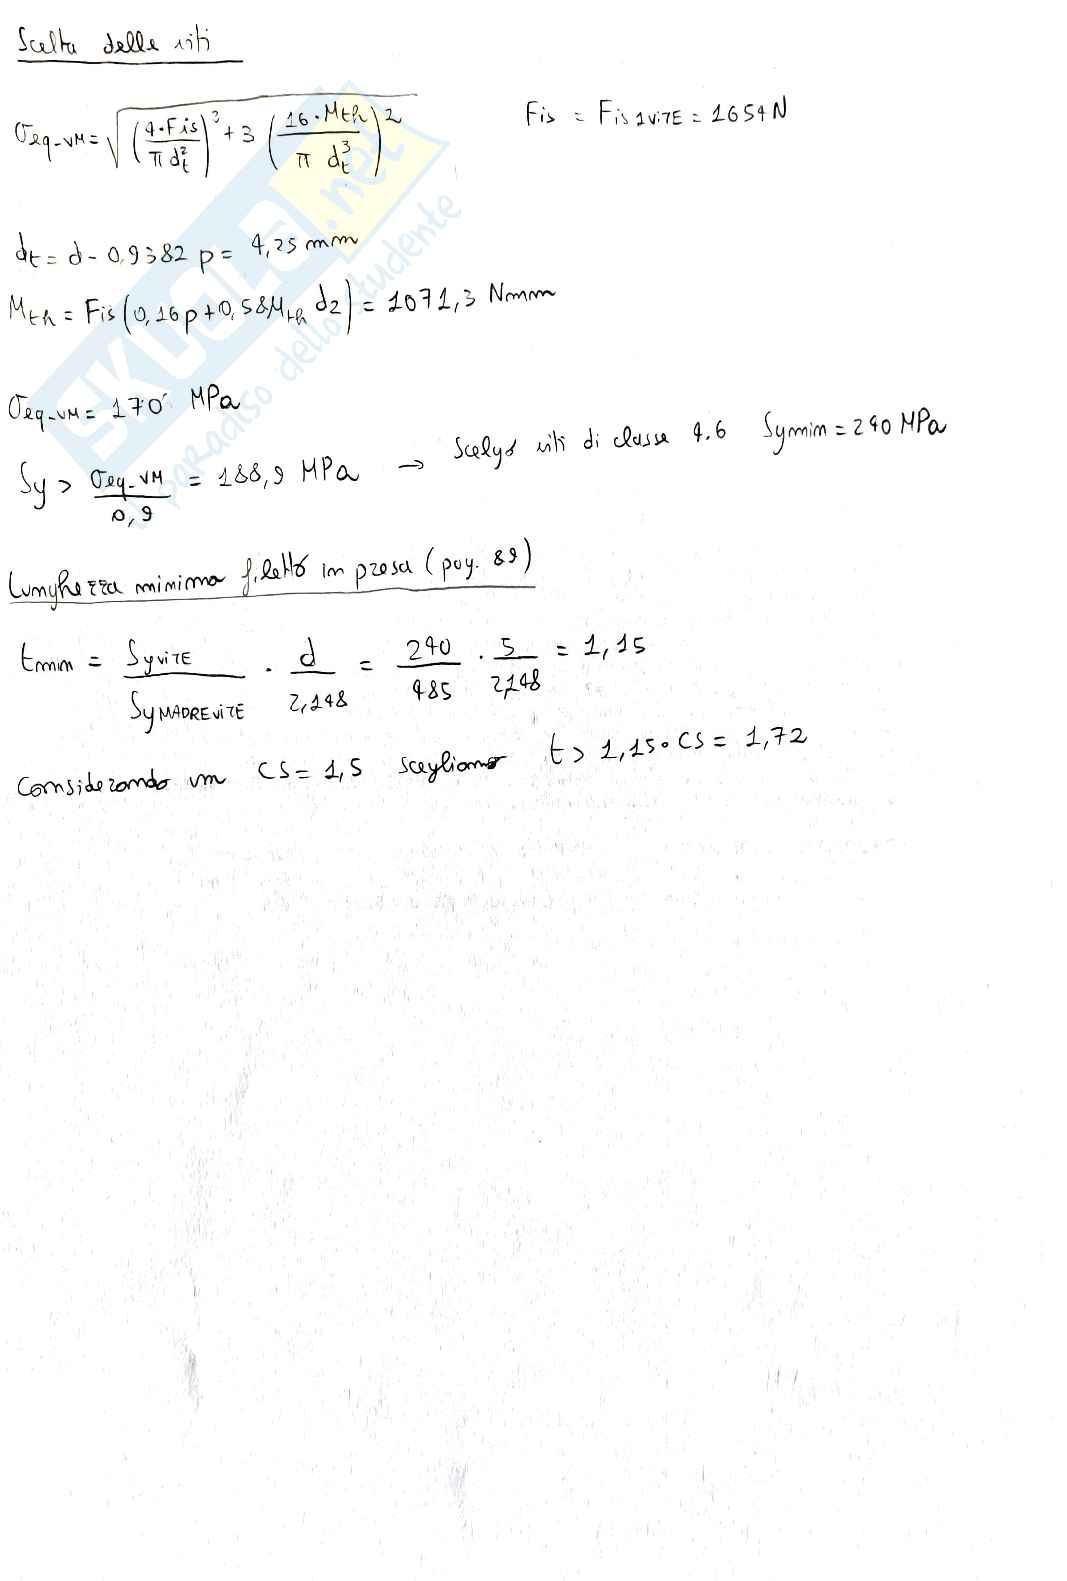 Scelta delle viti
σeq-VM = √( (4·Fis / π dt²)³ + 3 (16·Mth / π dt³)² )    Fis = Fis1VITE = 1654N
dt = d - 0,9382 p = 4,25 mm
Mth = Fis(0,16p+0,58μth d2) = 1071,3 Nmm
σeq-VM = 170 MPa
Sy > σeq-VM / 0,9 = 188,9 MPa → Scelgo viti di classe 4.6 Symin = 240 MPa
Lunghezza minima filetto in presa (pag. 89)
tmin = SyVITE / SyMADREVITE · d / 2,148 = 240 / 485 · 5 / 2,148 = 1,15
Considerando un CS = 1,5 scegliamo t > 1,15·CS = 1,72
SKUOLA.net
il paradiso dello studente